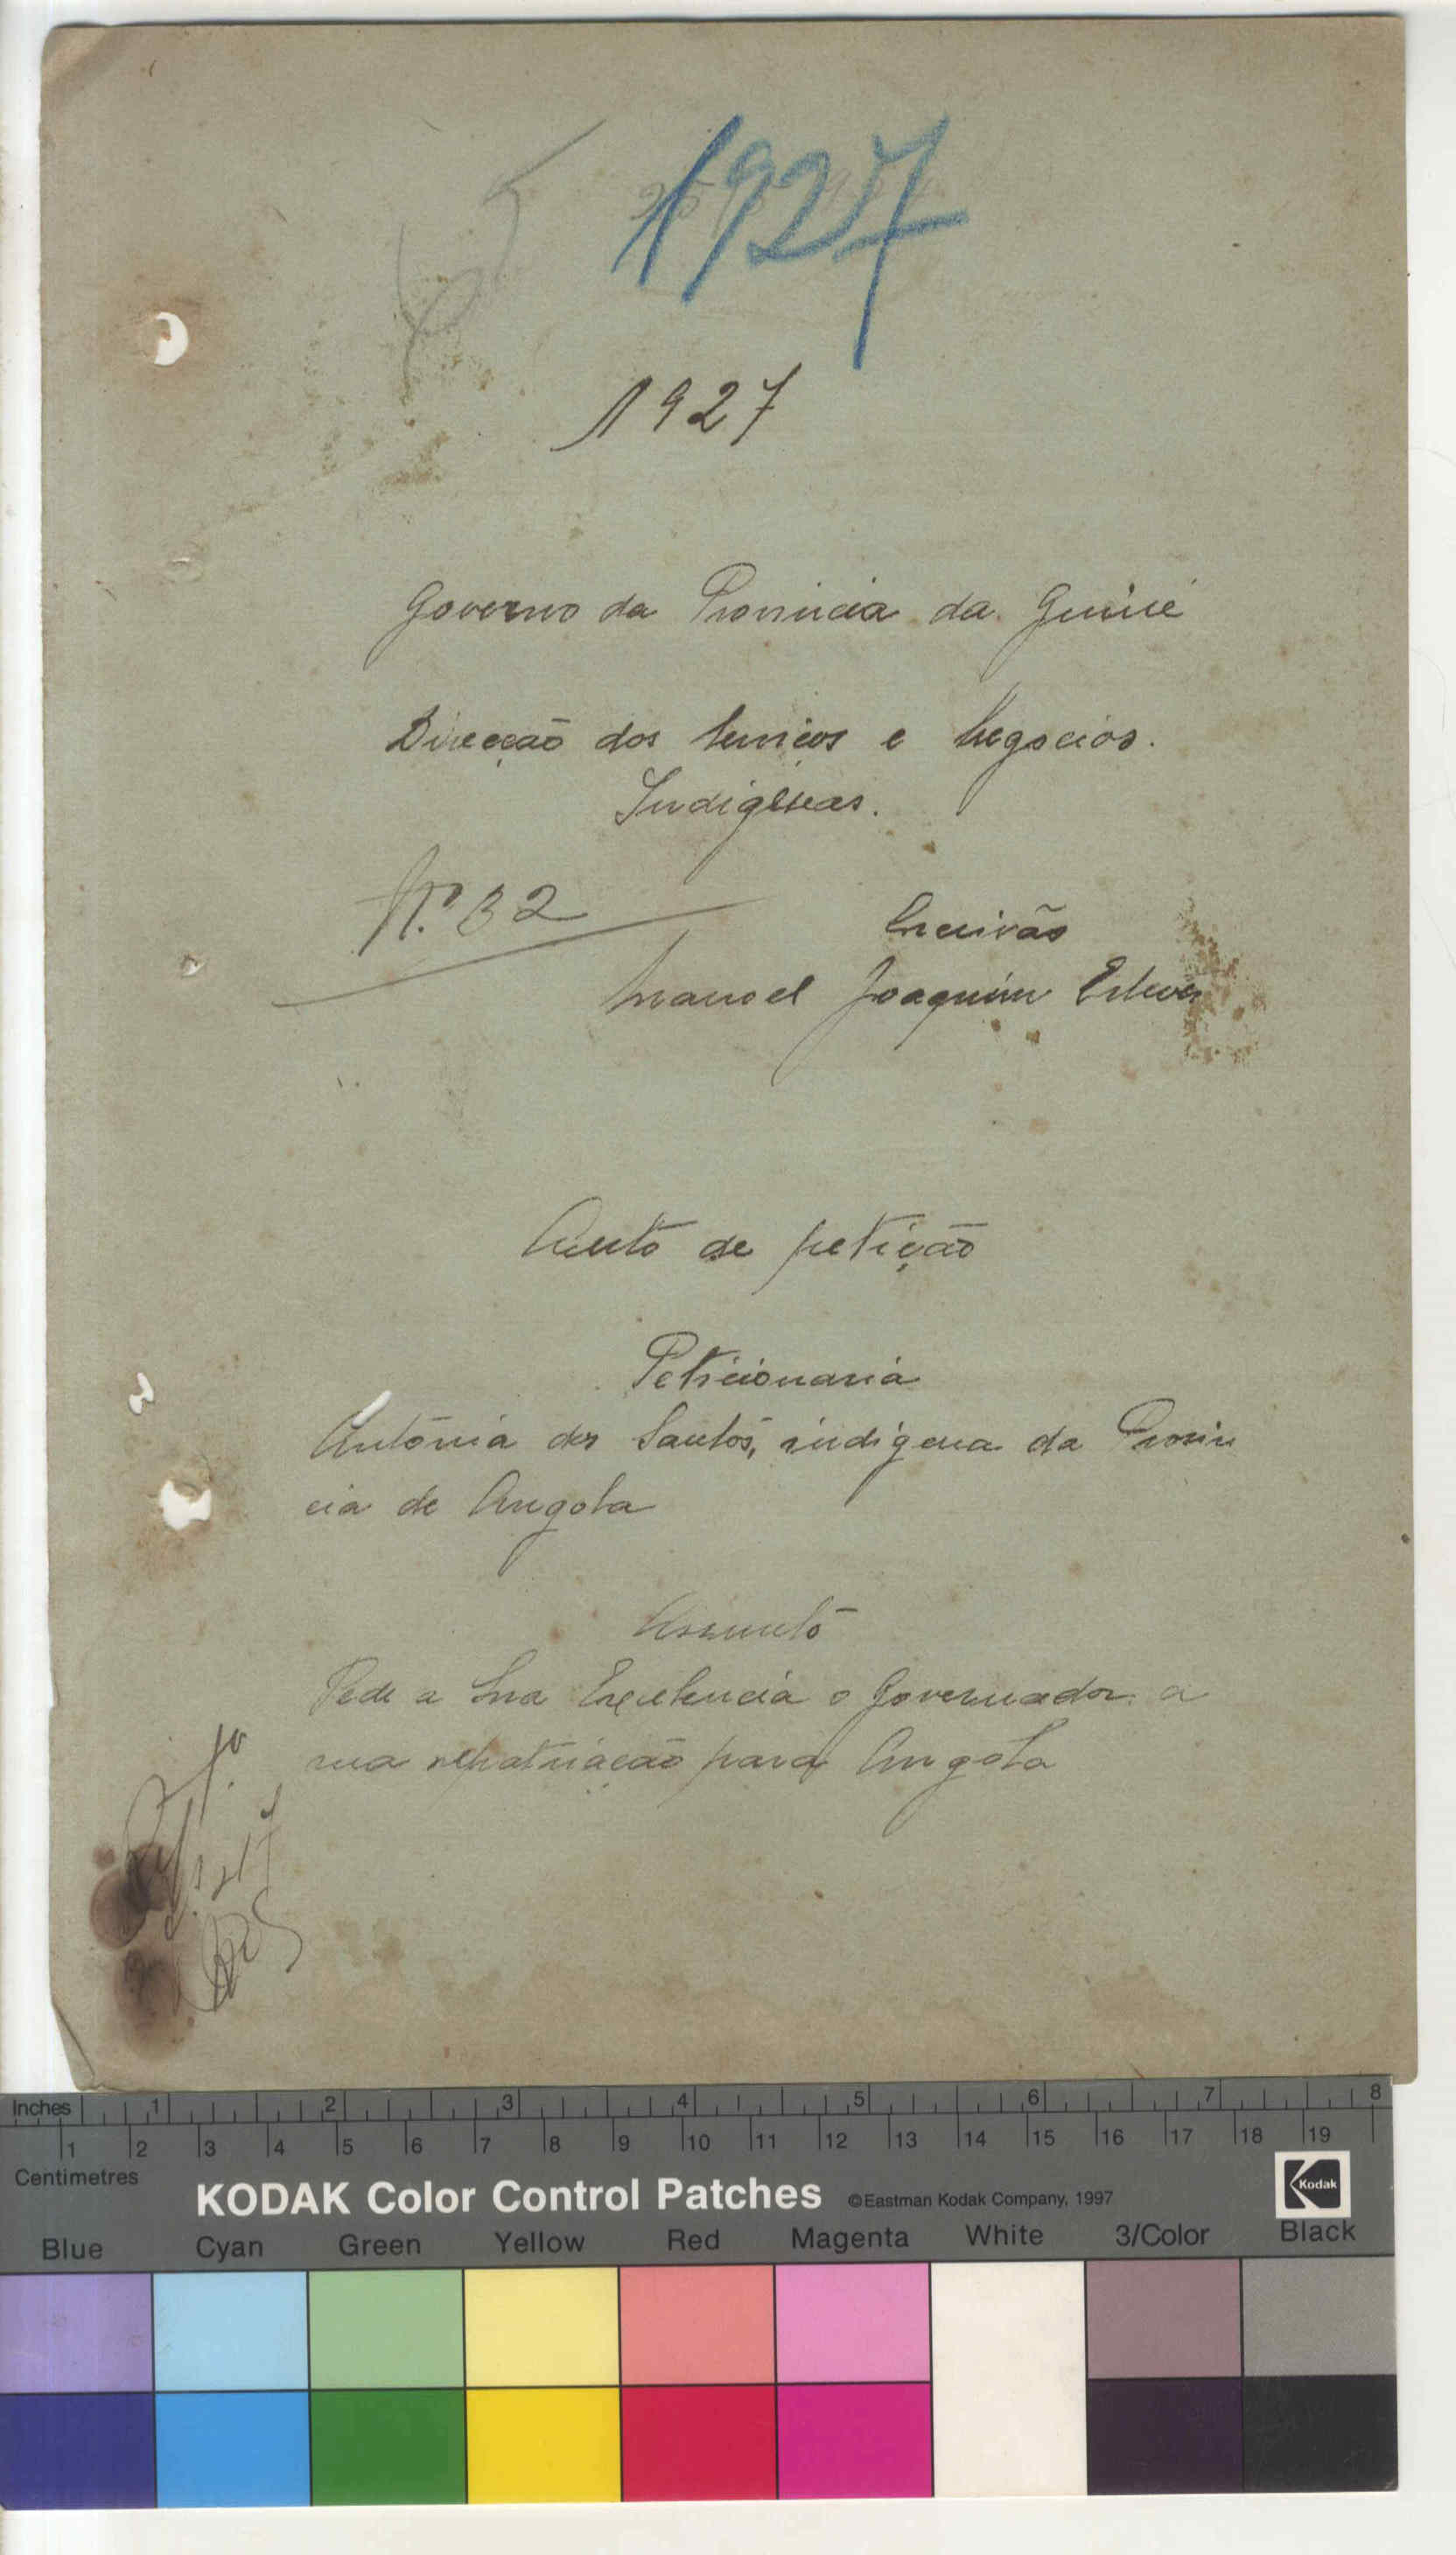 1927
1927
Governo da Provincia da Guiné
Direcção dos Serviços e Negocios.
Indigenas.
N.º 32
Escrivão
Manoel Joaquim Esteves
Auto de petição
Peticionaria
Antónia dos Santos, indigena da Provin
cia de Angola
Assunto
Pede a Sua Excelencia o Governador a
sua repatriação para Angola
Inches 1 2 3 4 5 6 7 8
1 2 3 4 5 6 7 8 9 10 11 12 13 14 15 16 17 18 19
Centimetres
KODAK Color Control Patches ©Eastman Kodak Company, 1997 Kodak
Blue Cyan Green Yellow Red Magenta White 3/Color Black